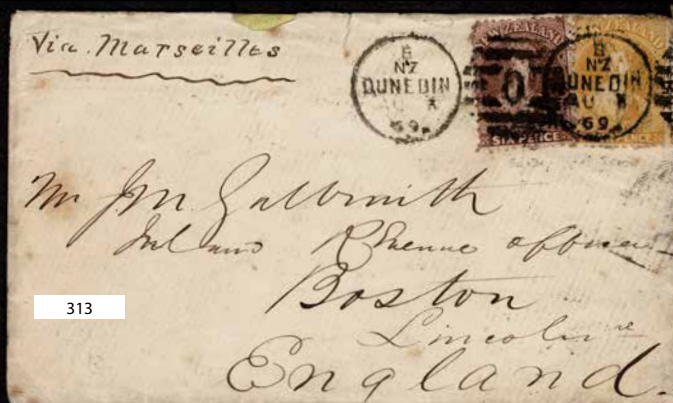 Via. Marseilles
B
NZ
DUNEDIN
AU X
69
NEW ZEALAND
O
SIXPENCE
ZEALAND
B
NZ
DUNEDIN
AU X
69
PENCE
Mr J M Galbraith
Inland Revenue office
Boston
Lincolnre
England.
313